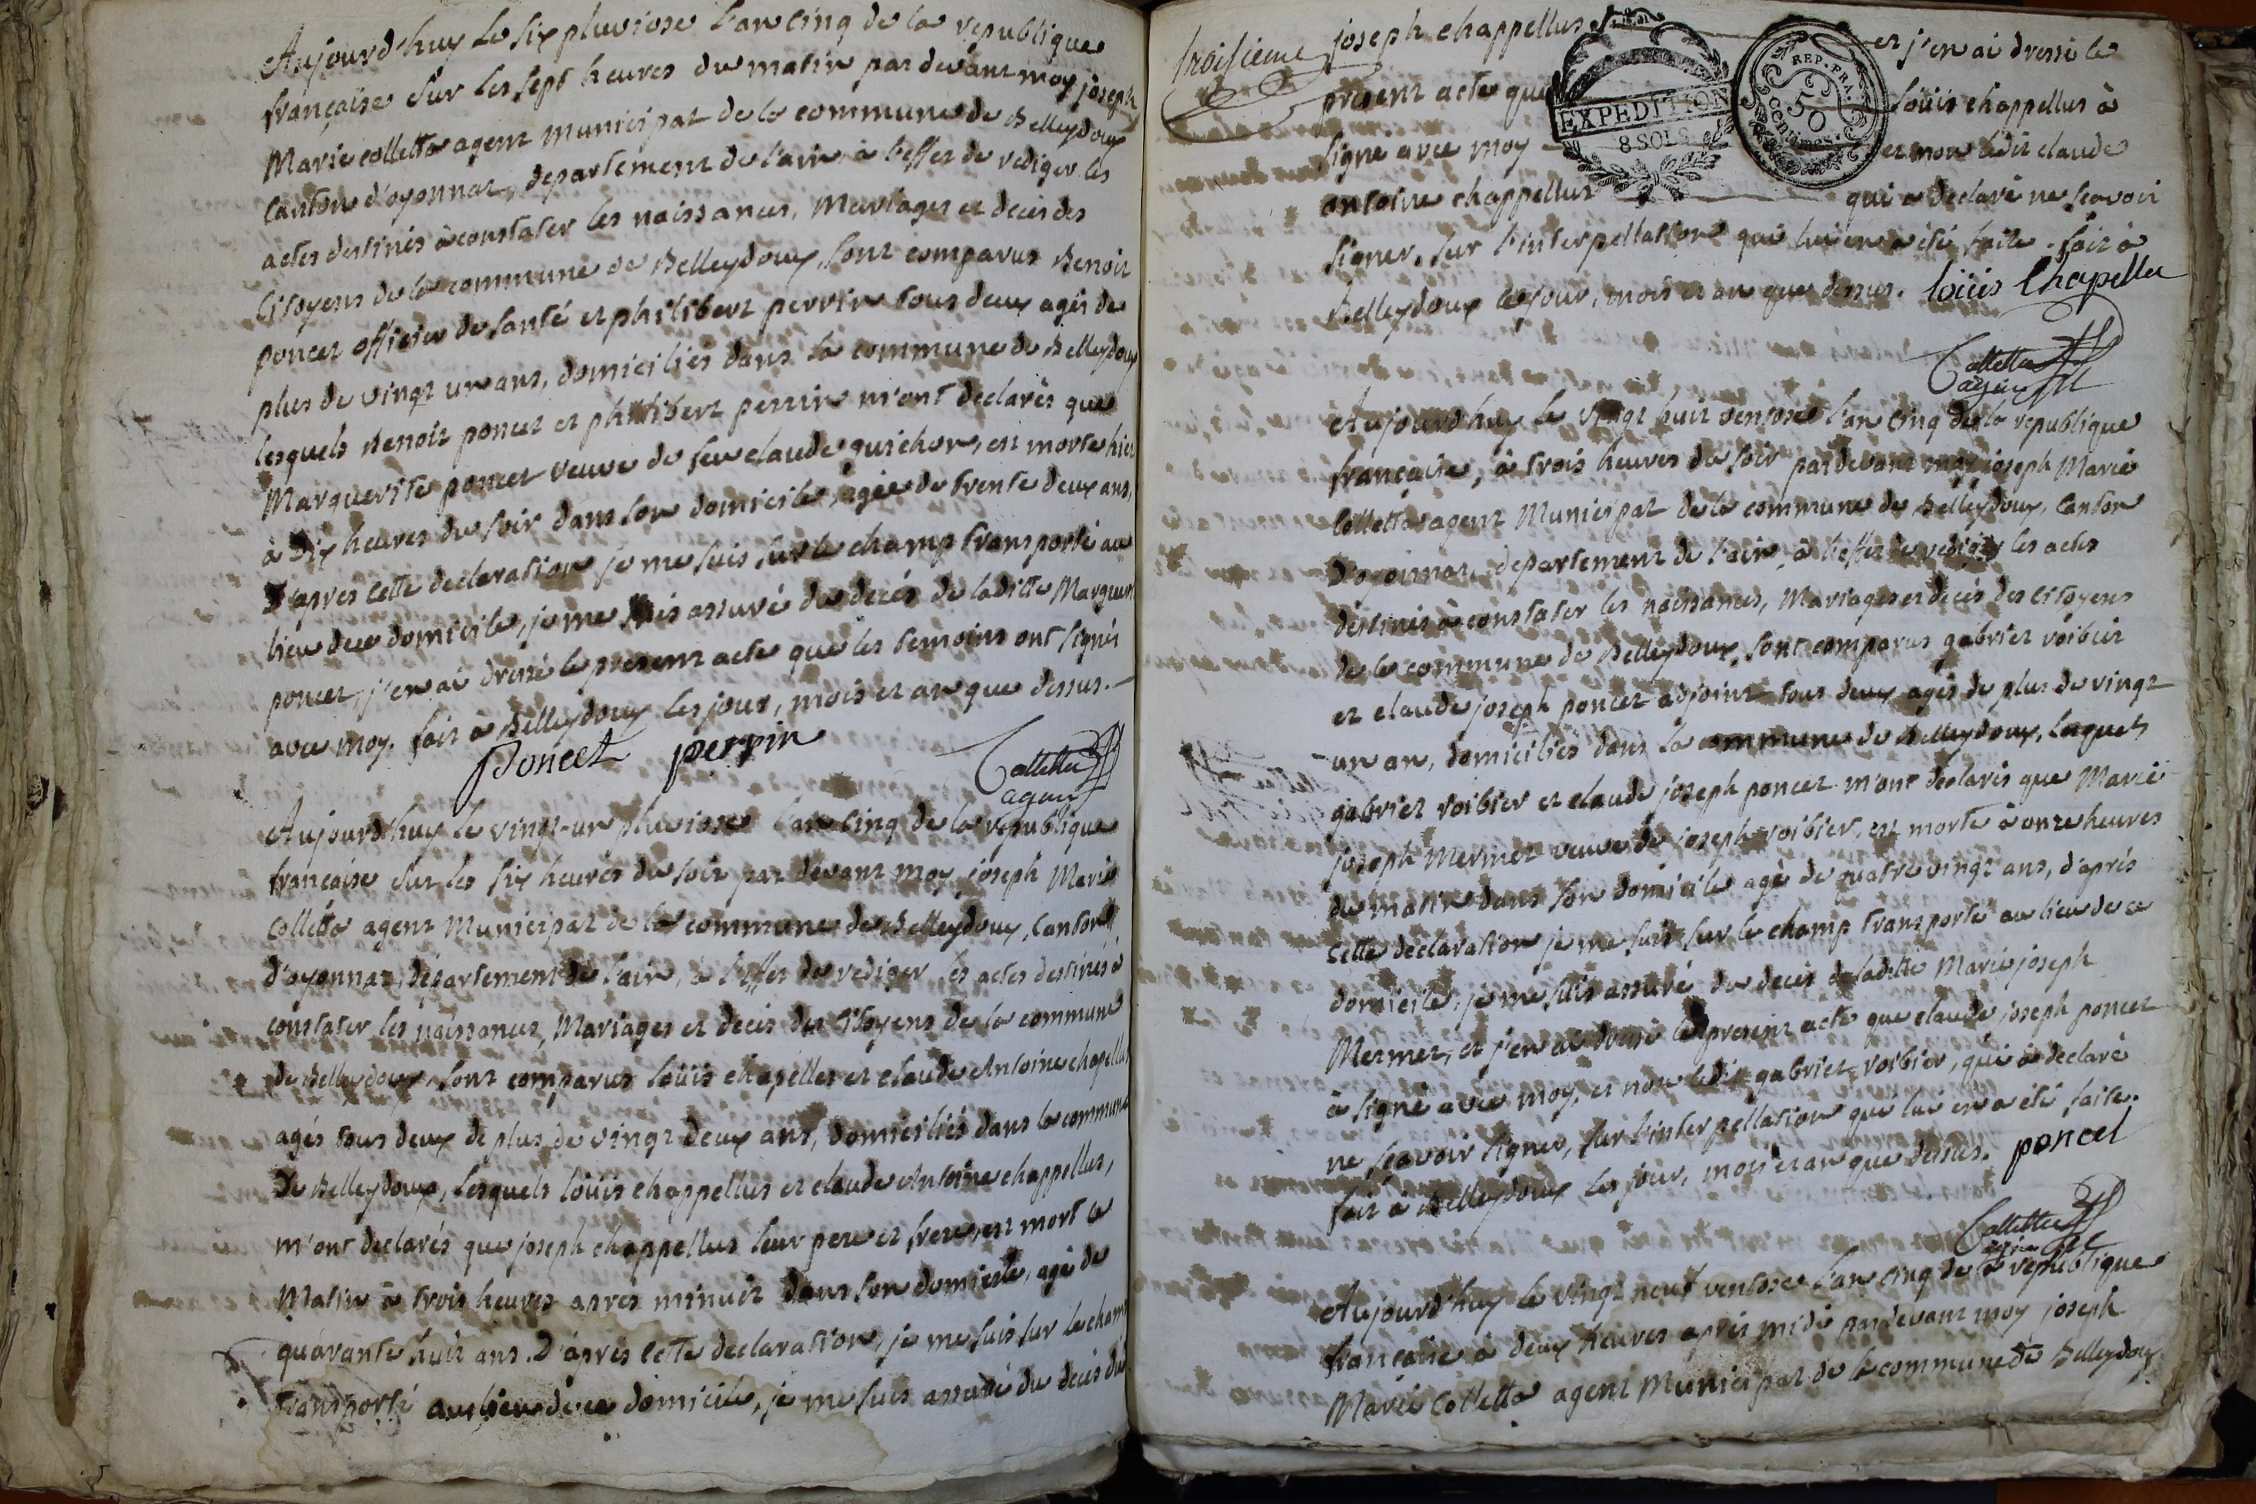 Aujourd'huy le six pluviose l'an cinq de la republique
française sur les sept heures du matin par devant moy joseph
Marie colletta agent municipal de la commune de Belleydoux
canton d'oyonnat, departement de l'ain, à l'effet de rediger les
actes destinés à constater les naissances, Mariages et decés des
citoyens de la commune de Belleydoux, sont comparus Benoit
poncet officier de santé et philibert perrin tous deux agés de
plus de vingt un ans, domiciliés dans la commune de Belleydoux
lesquels Benoit poncet et philibert perrin m'ont declarés que
Marguerite poncet veuve de feu claude guichon, est morte hier
à dix heures du soir dans son domicile, agée de trente deux ans,
D'apres cette declaration je me suis sur le champ transporté au
lieu de ce domicile, je me suis assuré du decés de laditte Marguerite
poncet, j'en ai dressé le present acte que les temoins ont signés
avec moy. fait à Belleydoux les jour, mois et an que dessus.
Poncet perrin Colletta
agent
Aujourd'huy le vingt-un pluviose l'an cinq de la republique
française sur les six heures du soir par devant moy joseph Marie
Colletta agent Municipal de la commune de Belleydoux, Canton
d'oyonnat, departement de l'ain, à l'effet de rediger les actes destinés à
constater les naissances, Mariages et decés des Citoyens de la commune
de Belleydoux, sont comparus loüis chapellet et claude Antoine chapellus
agés tous deux de plus de vingt deux ans, domiciliés dans la commune
De Belleydoux, lesquels loüis chappellus et claude Antoine chappellus,
m'ont declarés que joseph chappellus leur pere et frere, est mort ce
Matin à trois heures apres minuit dans son domicile, agé de
quarante huit ans. D'aprés cette declaration, je me suis sur le champ
transporté au lieu de ce domicile, je me suis assuré du decés du
troisieme
joseph chappellus et j'en ai dressé le
present acte que loüis chappellus à
signé avec moy et non ledit claude
antoine chappellus qui a declaré ne sçavoir
signer, sur l'interpellation qui lui en a été faite. fait à
Belleydoux les jour, mois et an que dessus. loüis Chapellu
EXPEDITION
8 SOLS
REP. FRA.
50
centimes
Colletta
agent
Aujourd'huy le vingt huit ventose l'an cinq de la republique
française, à trois heures du soir pardevant moy joseph Marie
Colletta agent Municipal de la commune de Belleydoux, Canton
D'oyonnat, departement de l'ain, à l'effet de rediger les actes
destinés à constater les naissances, Mariages et decés des citoyens
de la commune de Belleydoux, sont comparus gabriel roibier
et claude joseph poncet adjoint tous deux agés de plus de vingt
un an, domiciliés dans la commune de Belleydoux, lesquels
gabriel roibier et claude joseph poncet m'ont declarés que Marie
joseph Mermet veuve de joseph roibier, est morte à onze heures
du matin dans son domicile agé de quatre vingt ans, d'aprés
cette declaration je me suis sur le champ transporté au lieu de ce
domicile, je me suis assuré du decés de laditte Marie joseph
Mermet, et j'en ai dressé le present acte que claude joseph poncet
à signé avec moy, et non ledit gabriel roibier, qui à declaré
ne sçavoir signer, sur l'interpellation qui lui en a été faite.
fait à Belleydoux les jour, mois et an que dessus. poncet
Colletta
agent
Aujourd'huy le vingt neuf ventose l'an cinq de la republique
française à deux heures aprés midi pardevant moy joseph
Marie Colletta agent Municipal de la commune de Belleydoux